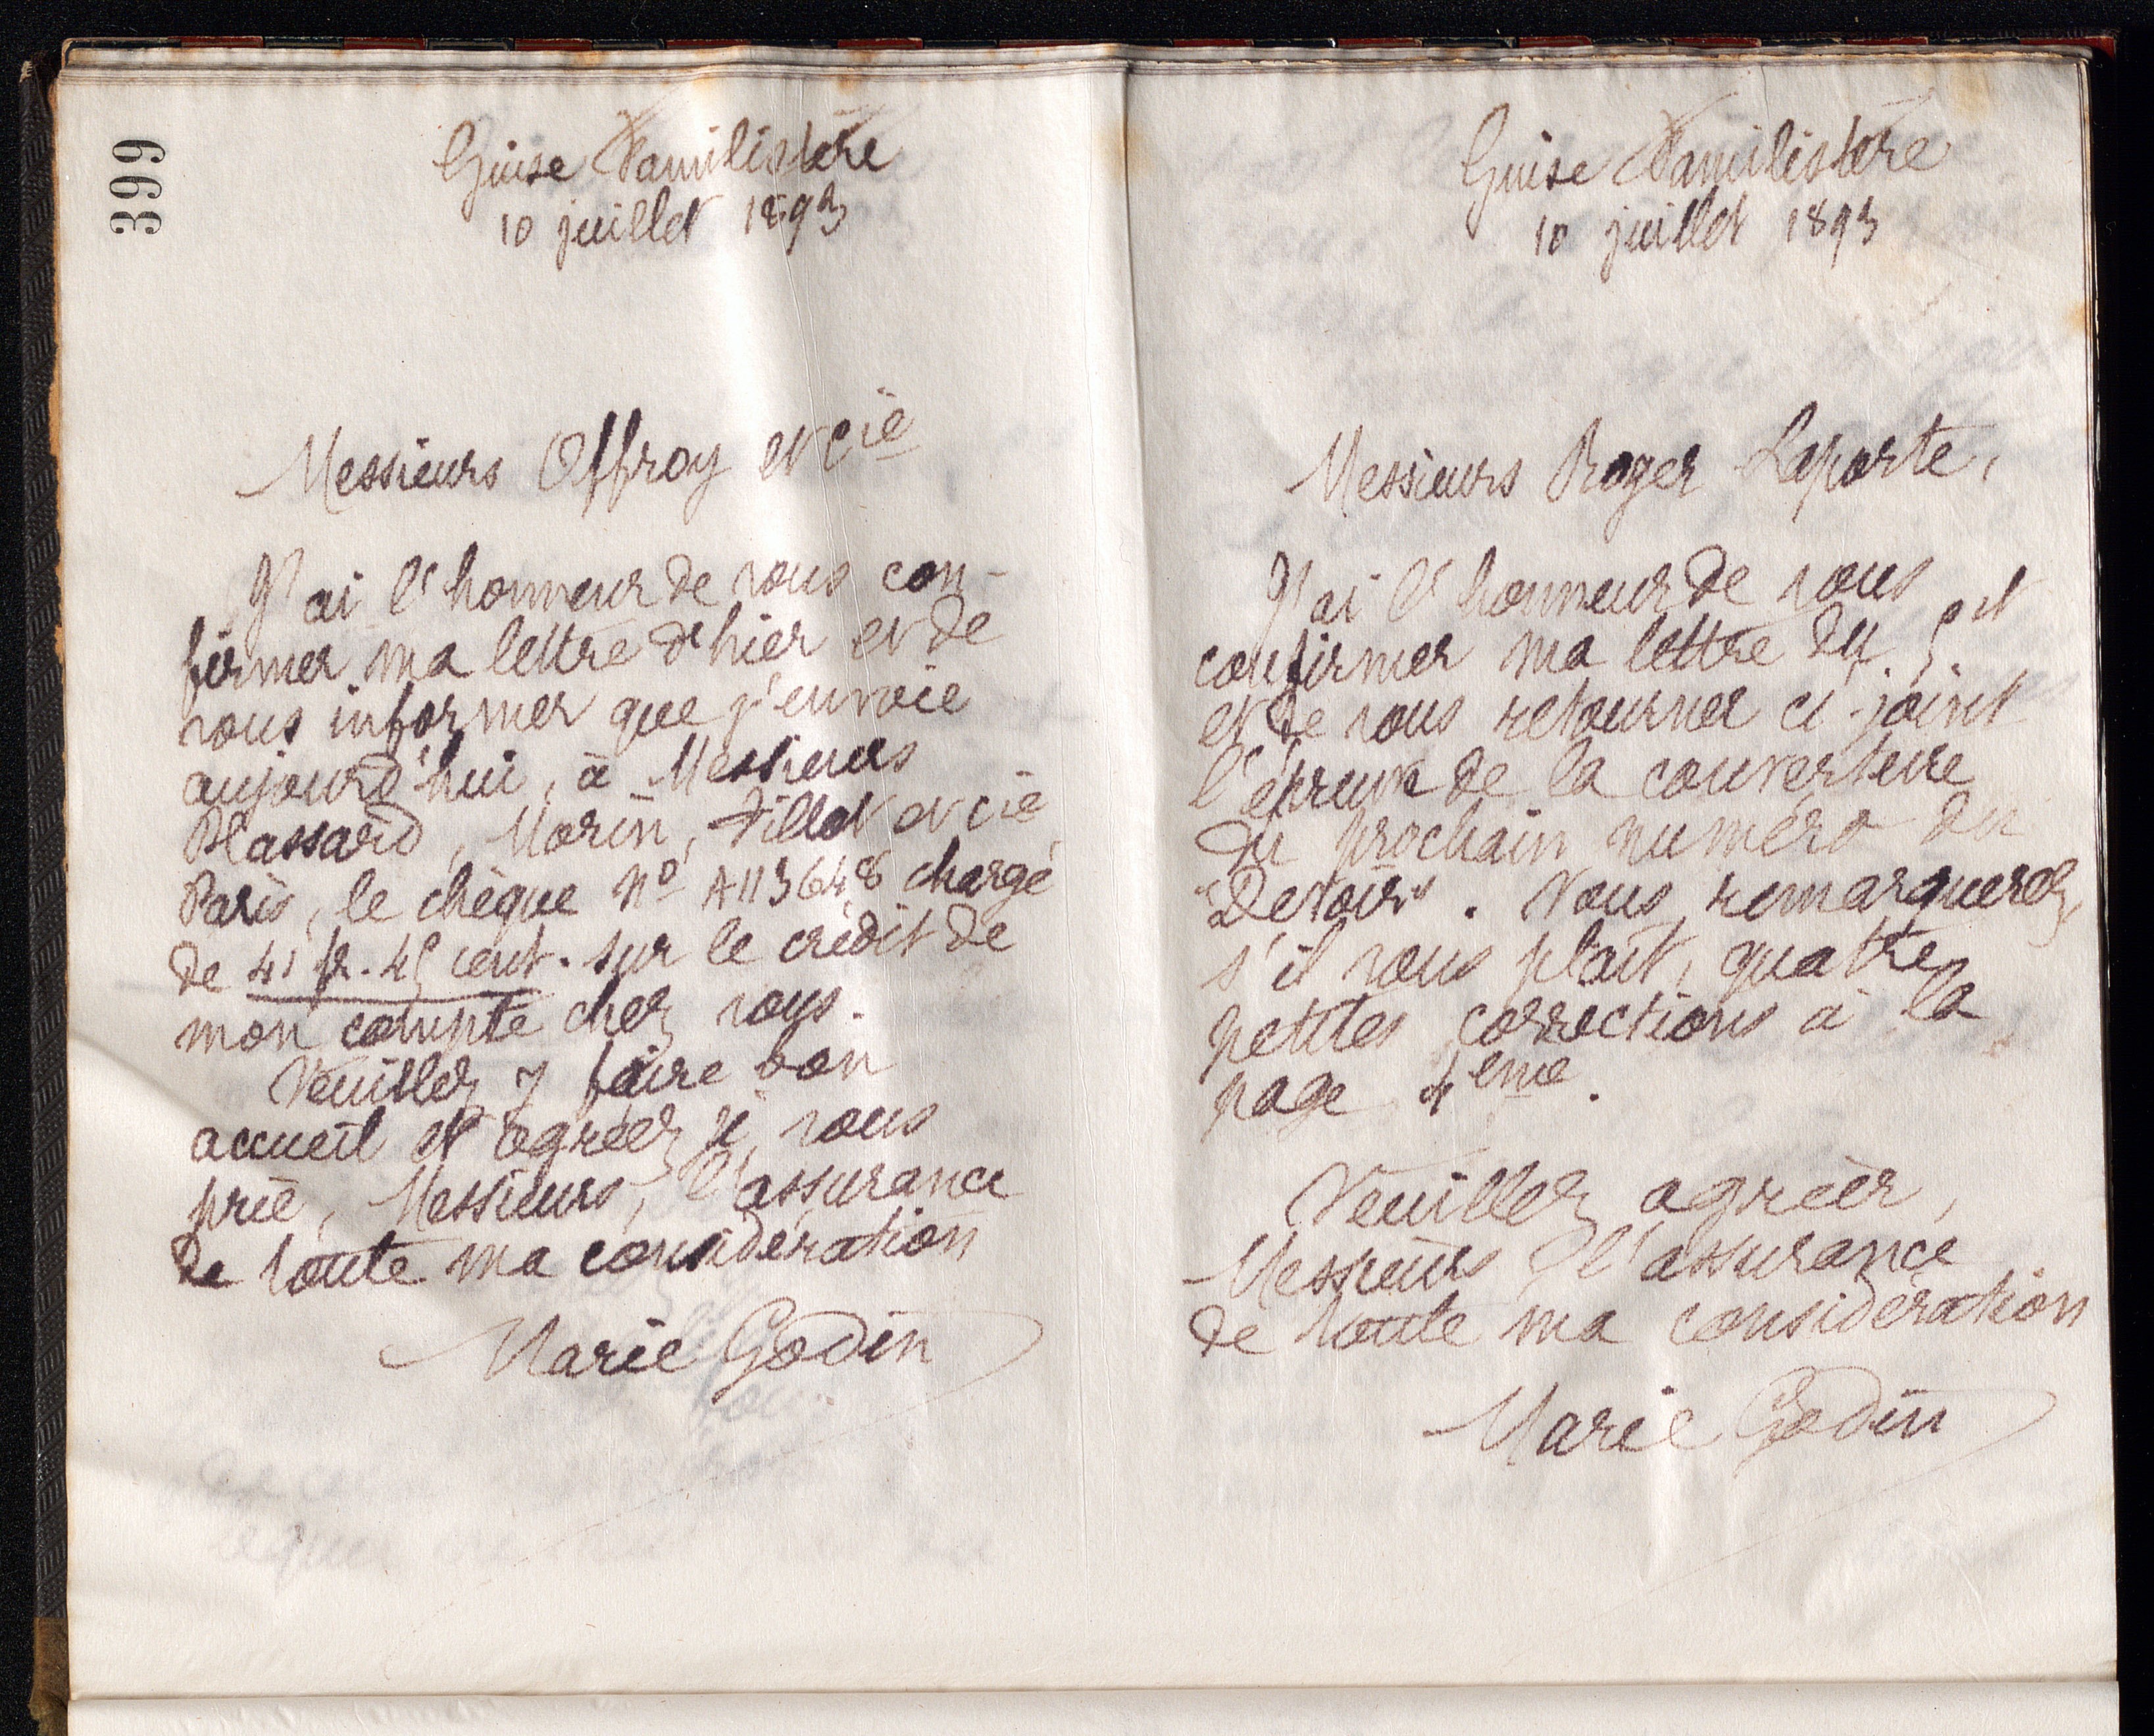 399
Guise Familistère
10 juillet 1893
Messieurs Offroy et Cie
J'ai l'honneur de vous con-
firmer ma lettre d'hier et de
vous informer que j'envoie
aujourd'hui, à Messieurs
Plassard, Morin, Fillot et Cie
Paris, le chèque No A113648 chargé
de 41 fr. 45 cent. sur le crédit de
mon compte chez vous.
Veuillez y faire bon
accueil et agréez je vous
prie, Messieurs, l'assurance
de toute ma considération
Marie Godin
Guise Familistère
10 juillet 1893
Messieurs Roger Laporte,
J'ai l'honneur de vous
confirmer ma lettre du 5 ct
et de vous retourner ci-joint
l'épreuve de la couverture
du prochain numéro du
"Devoir". Vous remarquerez,
s'il vous plaît, quatre
petites corrections à la
page 4eme.
Veuillez agréer,
Messieurs, l'assurance
de toute ma considération
Marie Godin